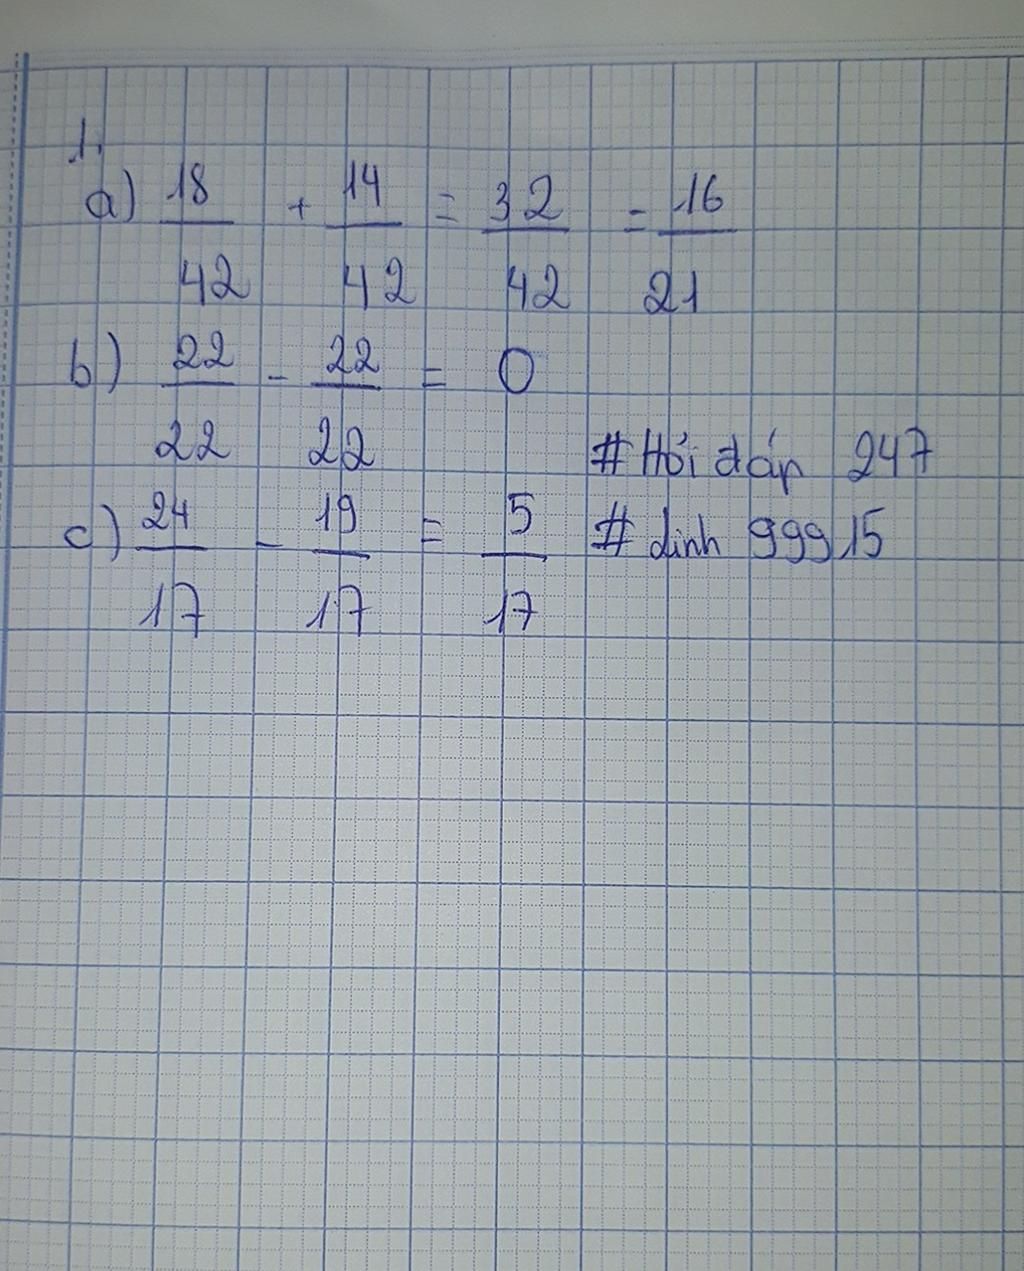 1.
a) 18/42 + 14/42 = 32/42 = 16/21
b) 22/22 - 22/22 = 0
#Hỏi đáp 247
c) 24/17 - 19/17 = 5/17
# linh 99915